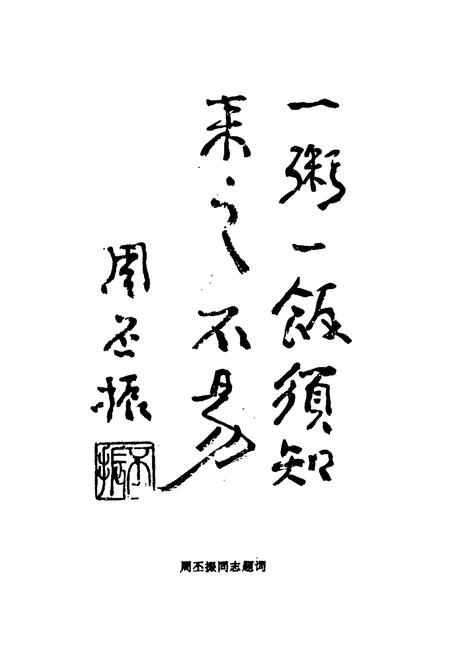 一粥一飯須知
来之不易
周丕振
丕振
周丕振同志题词